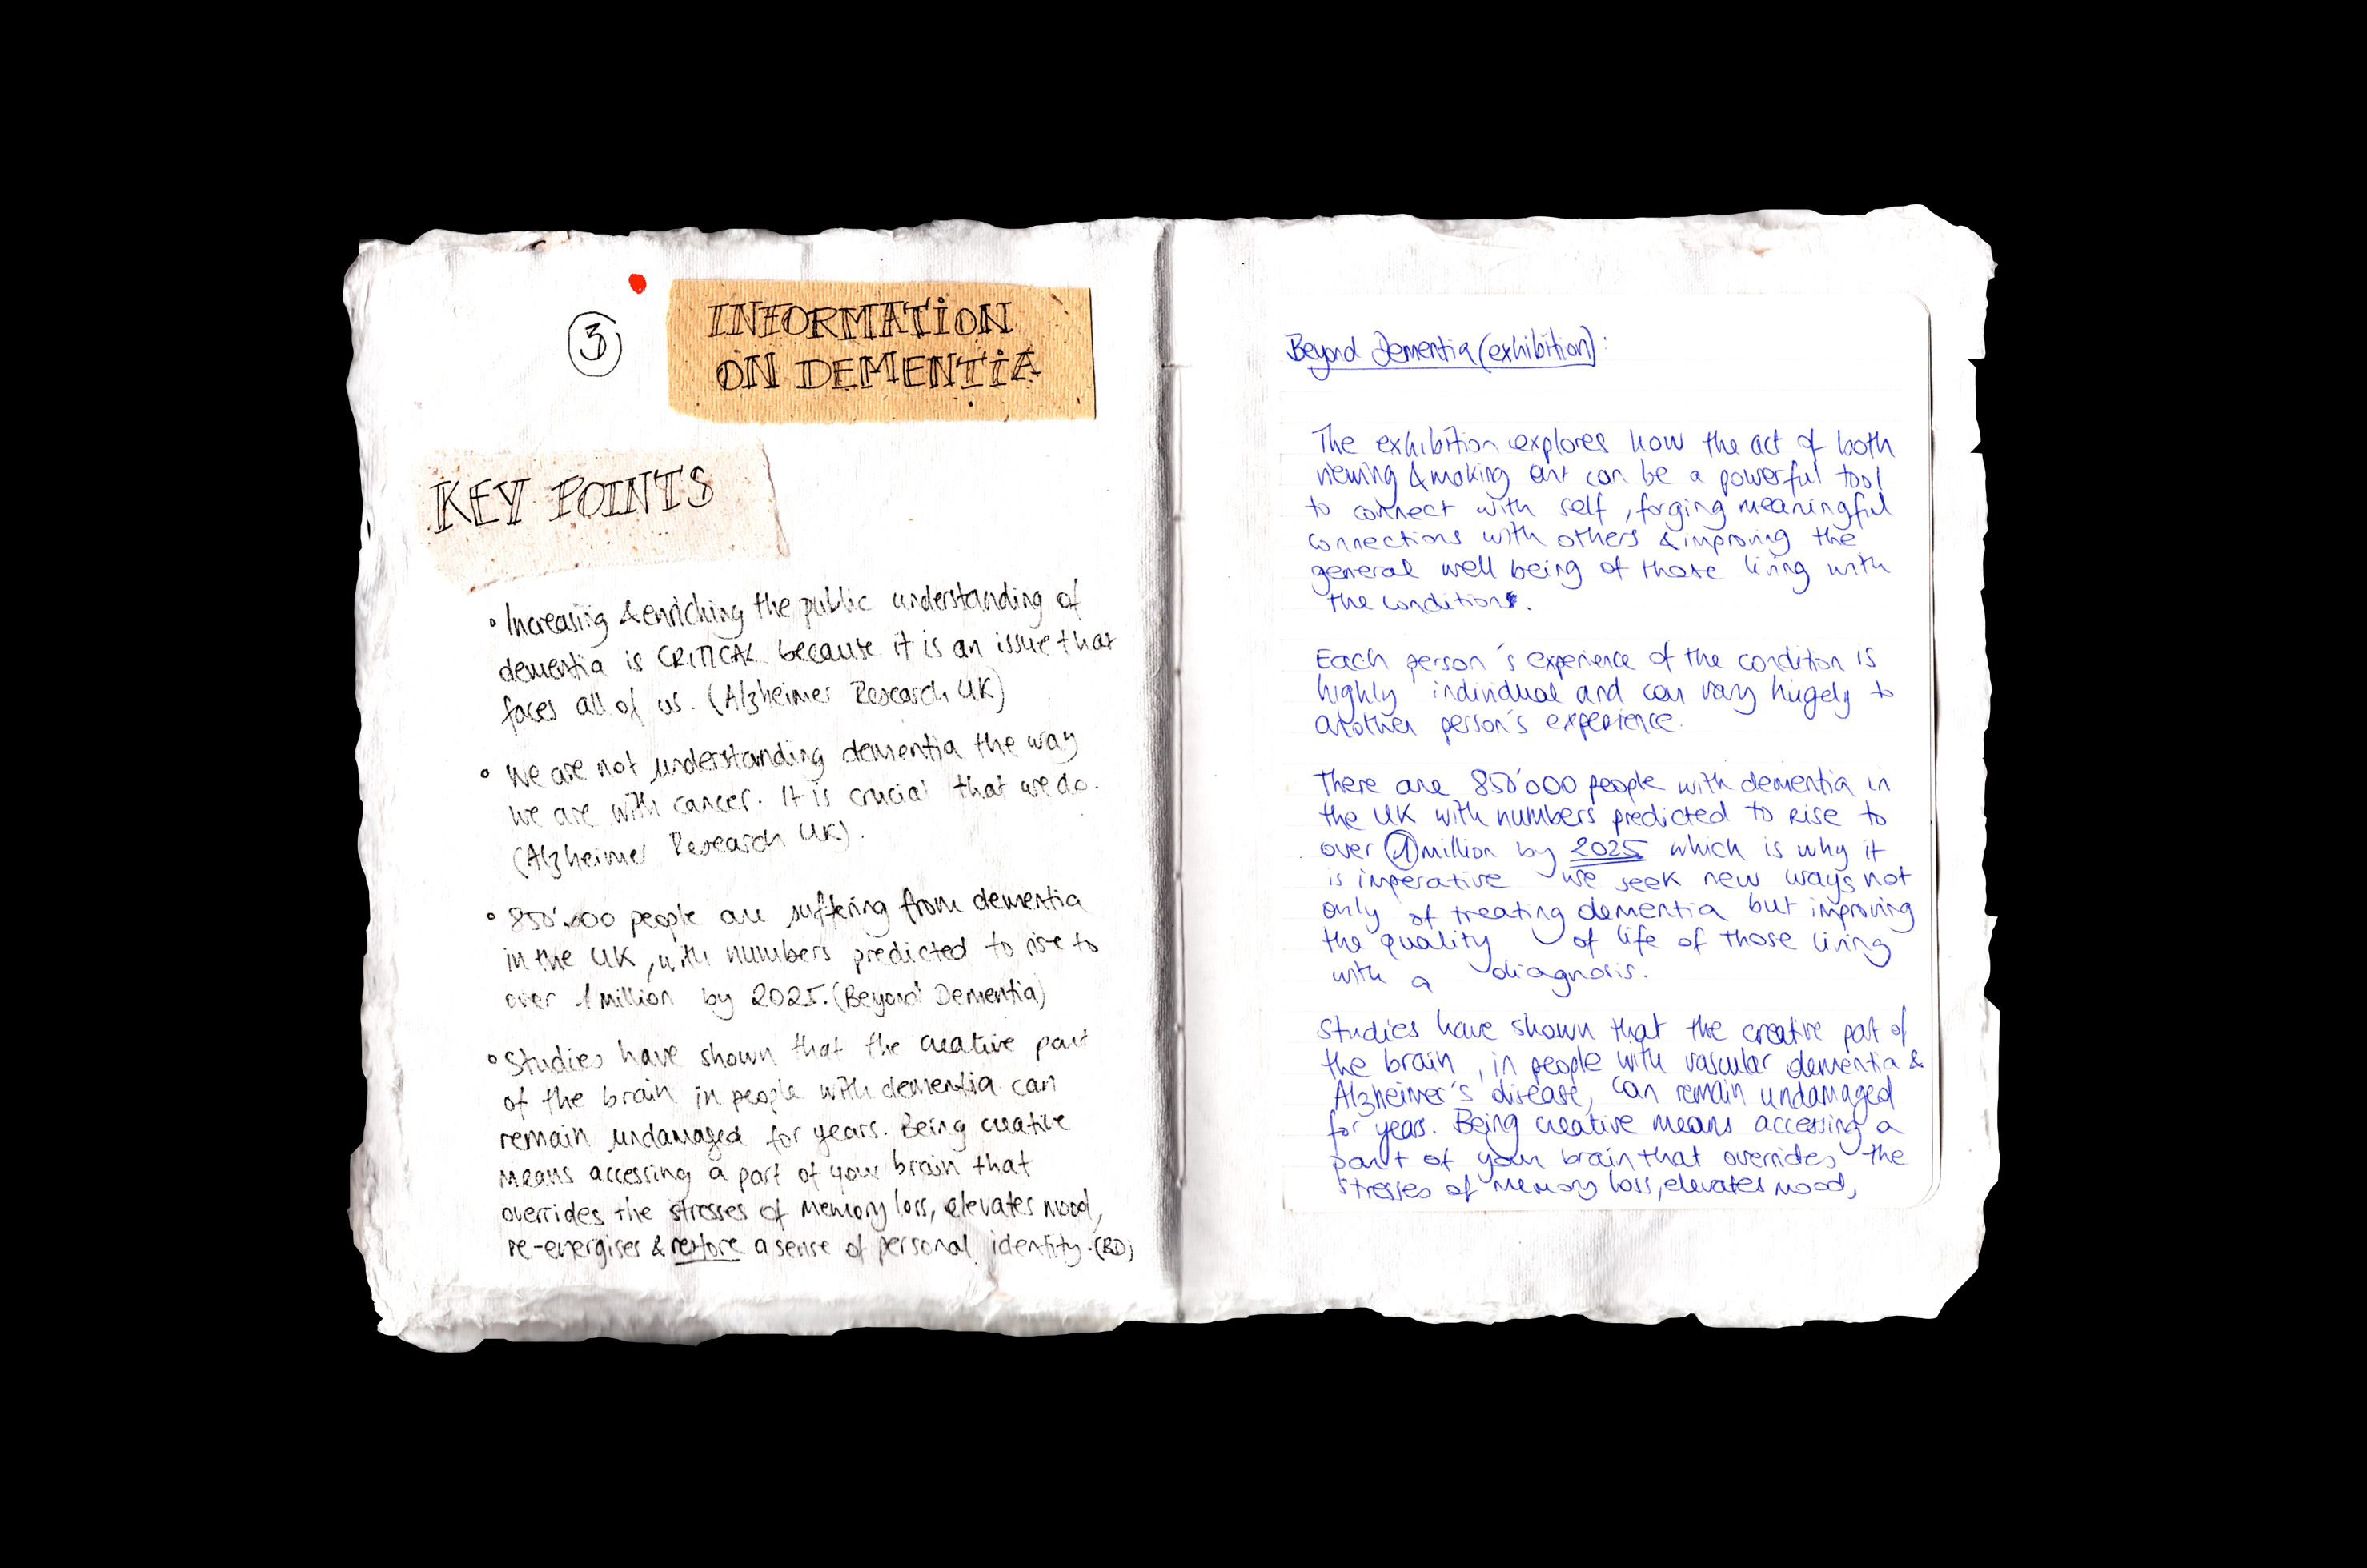 3
INFORMATION
ON DEMENTIA
KEY POINTS
• Increasing & enriching the public understanding of
dementia is CRITICAL because it is an issue that
faces all of us. (Alzheimer Research UK)
• We are not understanding dementia the way
we are with cancer. It is crucial that we do.
(Alzheimer Research UK).
• 850'000 people are suffering from dementia
in the UK, with numbers predicted to rise to
over 1 million by 2025. (Beyond Dementia)
• Studies have shown that the creative part
of the brain in people with dementia can
remain undamaged for years. Being creative
means accessing a part of your brain that
overrides the stresses of memory loss, elevates mood,
re-energises & restore a sense of personal identity. (BD)
Beyond Dementia (exhibition):
The exhibition explores how the act of both
viewing & making art can be a powerful tool
to connect with self, forging meaningful
connections with others & improving the
general well being of those living with
the condition.
Each person's experience of the condition is
highly individual and can vary hugely to
another person's experience.
There are 850'000 people with dementia in
the UK with numbers predicted to rise to
over 1 million by 2025 which is why it
is imperative we seek new ways not
only of treating dementia but improving
the quality of life of those living
with a diagnosis.
Studies have shown that the creative part of
the brain, in people with vascular dementia &
Alzheimer's disease, can remain undamaged
for years. Being creative means accessing a
part of your brain that overrides the
stresses of memory loss, elevates mood,